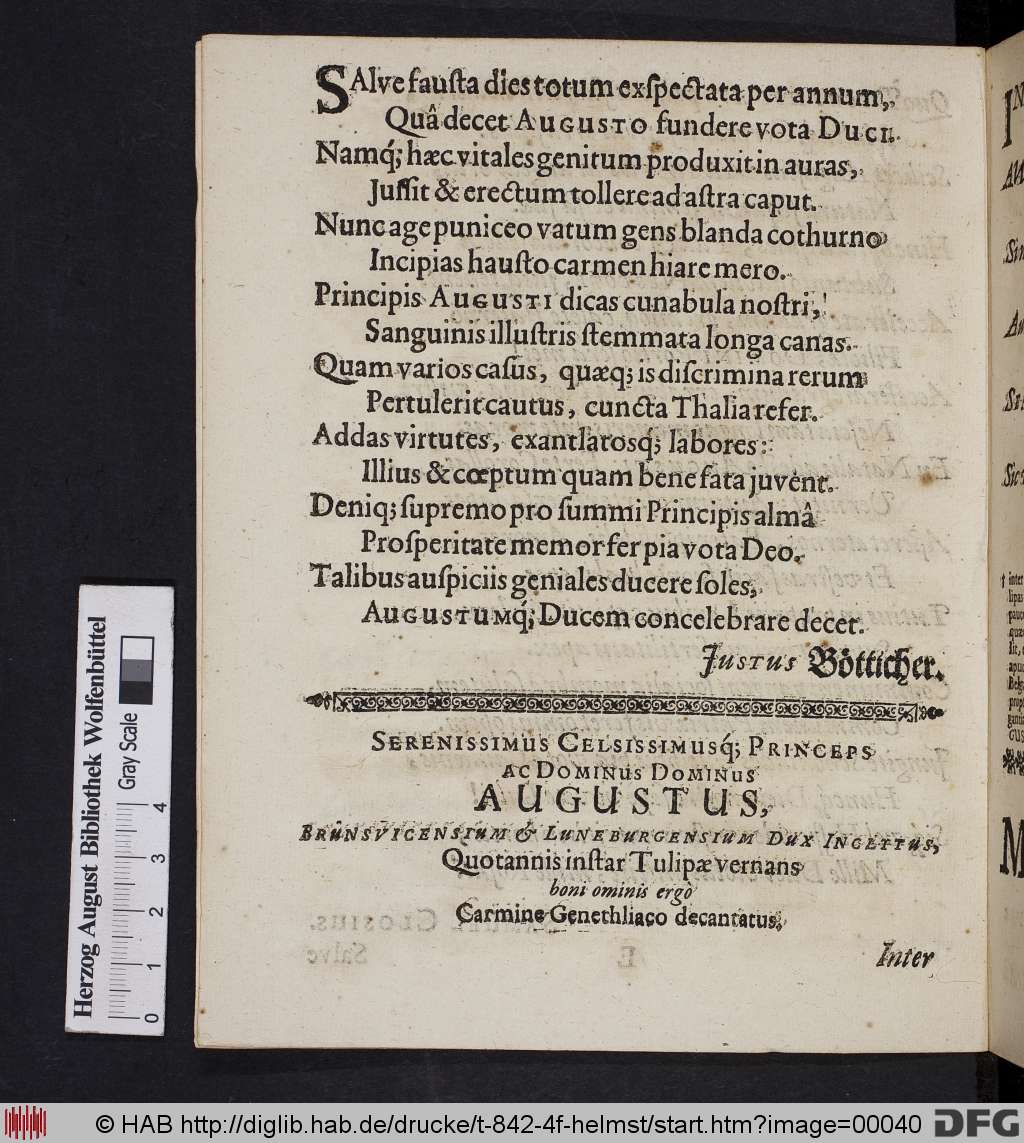 SAlve fauſta dies totum exſpectata per annum,
Quâ decet AUGUSTO fundere vota DUCI.
Namq́; hæc vitales genitum produxit in auras,
Juſſit & erectum tollere ad aſtra caput.
Nunc age puniceo vatum gens blanda cothurno
Incipias hauſto carmen hiare mero.
Principis AUGUSTI dicas cunabula noſtri,
Sanguinis illuſtris ſtemmata longa canas.
Quam varios caſus, quæq; is diſcrimina rerum
Pertulerit cautus, cuncta Thalia refer.
Addas virtutes, exantlatosq́; labores:
Illius & cœptum quam bene fata juvent.
Deniq; ſupremo pro ſummi Principis almâ
Proſperitate memor fer pia vota Deo.
Talibus auſpiciis geniales ducere ſoles,
AUGUSTUMq́; Ducem concelebrare decet.
JUSTUS Bötticher.
SERENISSIMUS CELSISSIMUSq́; PRINCEPS
AC DOMINUS DOMINUS
AUGUSTUS,
BRUNSVICENSIUM & LUNEBURGENSIUM DUX INCLYTUS,
Quotannis inſtar Tulipæ vernans
boni ominis ergò
Carmine Genethliaco decantatus,
Inter
Herzog August Bibliothek Wolfenbüttel
Gray Scale
0 1 2 3 4
© HAB http://diglib.hab.de/drucke/t-842-4f-helmst/start.htm?image=00040
DFG